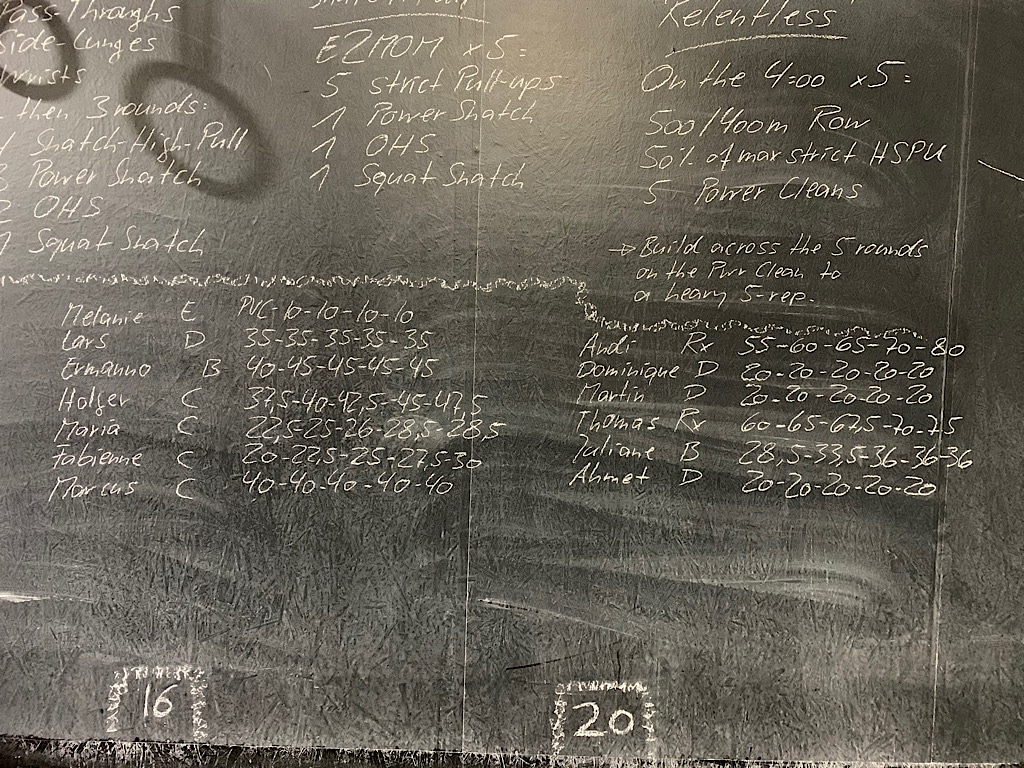 Pass-Throughs
Side-Lunges
Wrists
then 3 rounds:
Snatch-High-Pull
3 Power Snatch
2 OHS
1 Squat Snatch
E2MOM x5:
5 strict Pull-ups
1 Power Snatch
1 OHS
1 Squat Snatch
Relentless
On the 4:00 x5:
500/400m Row
50% of max strict HSPU
5 Power Cleans
→ Build across the 5 rounds
on the Pwr Clean to
a heavy 5-rep.
Melanie E PVC-10-10-10-10
Lars D 35-35-35-35-35
Ermanno B 40-45-45-45-45
Holger C 37,5-40-42,5-45-47,5
Maria C 22,5-25-26-28,5-28,5
Fabienne C 20-22,5-25-27,5-30
Marcus C 40-40-40-40-40
Andi Rx 55-60-65-70-80
Dominique D 20-20-20-20-20
Martin D 20-20-20-20-20
Thomas Rx 60-65-67,5-70-75
Juliane B 28,5-33,5-36-36-36
Ahmet D 20-20-20-20-20
16
20